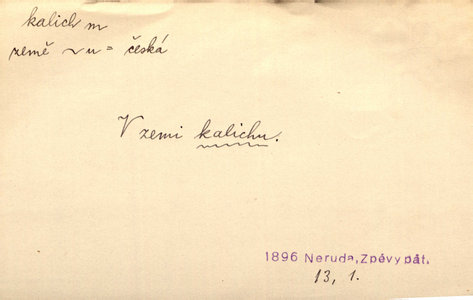 kalich m
země ~ u = česká
V zemi kalichu.
1896 Neruda, Zpěvy pát.
13, 1.